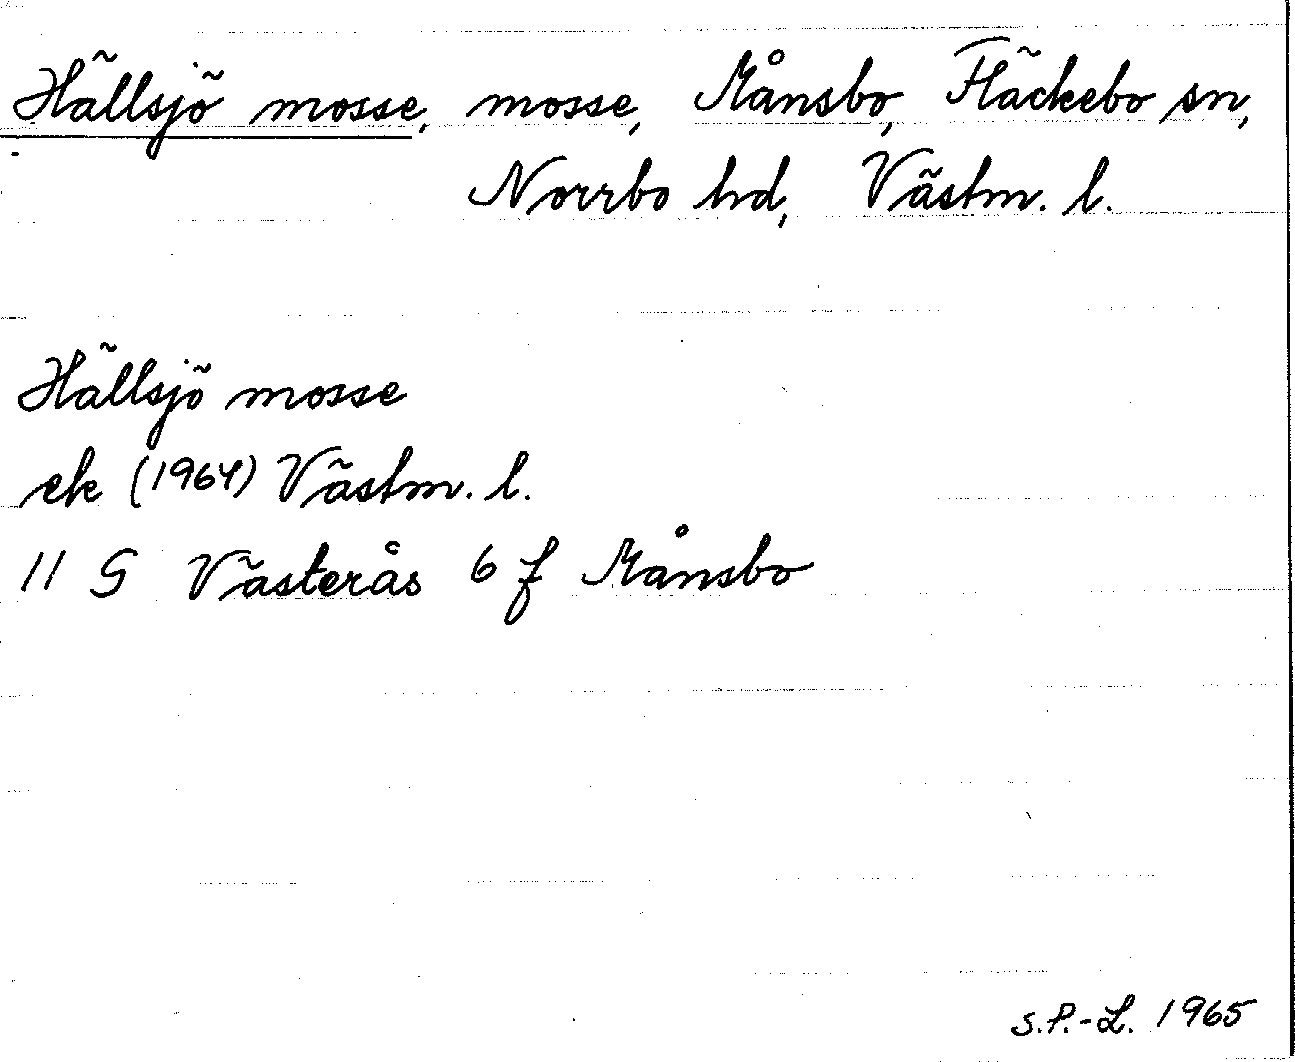 Hällsjö mosse, mosse, Månsbo, Fläckebo sn,
Norrbo hd, Västm. l.
Hällsjö mosse
ek (1964) Västm. l.
11 G Västerås 6 f Månsbo
S.P.-L. 1965